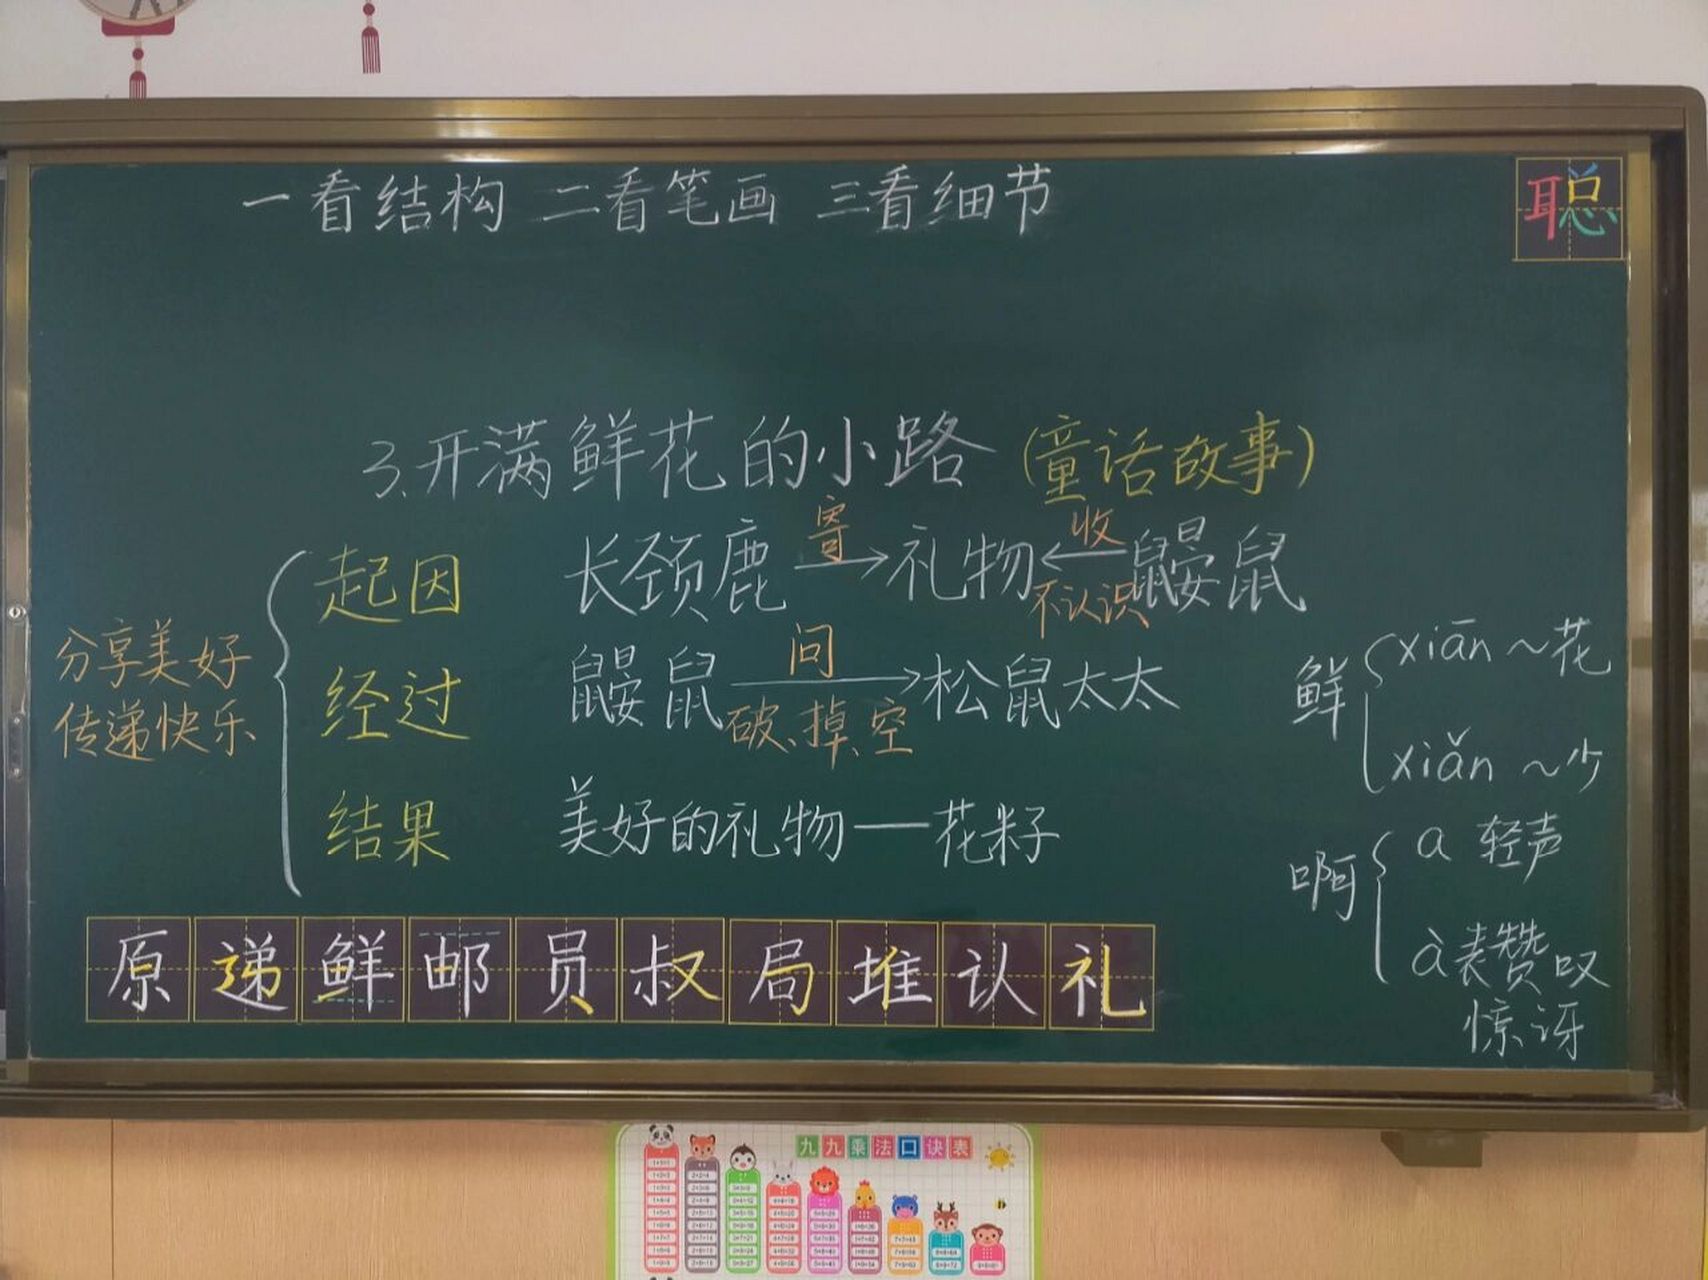 一看结构 二看笔画 三看细节
聪
3.开满鲜花的小路(童话故事)
分享美好
传递快乐
起因 长颈鹿 寄 礼物 收 不认识 鼹鼠
经过 鼹鼠 问 破、掉、空 松鼠太太
结果 美好的礼物——花籽
鲜 xiān ~花
xiǎn ~少
啊 a 轻声
à 表赞叹
惊讶
原递鲜邮员叔局堆认礼
九九乘法口诀表